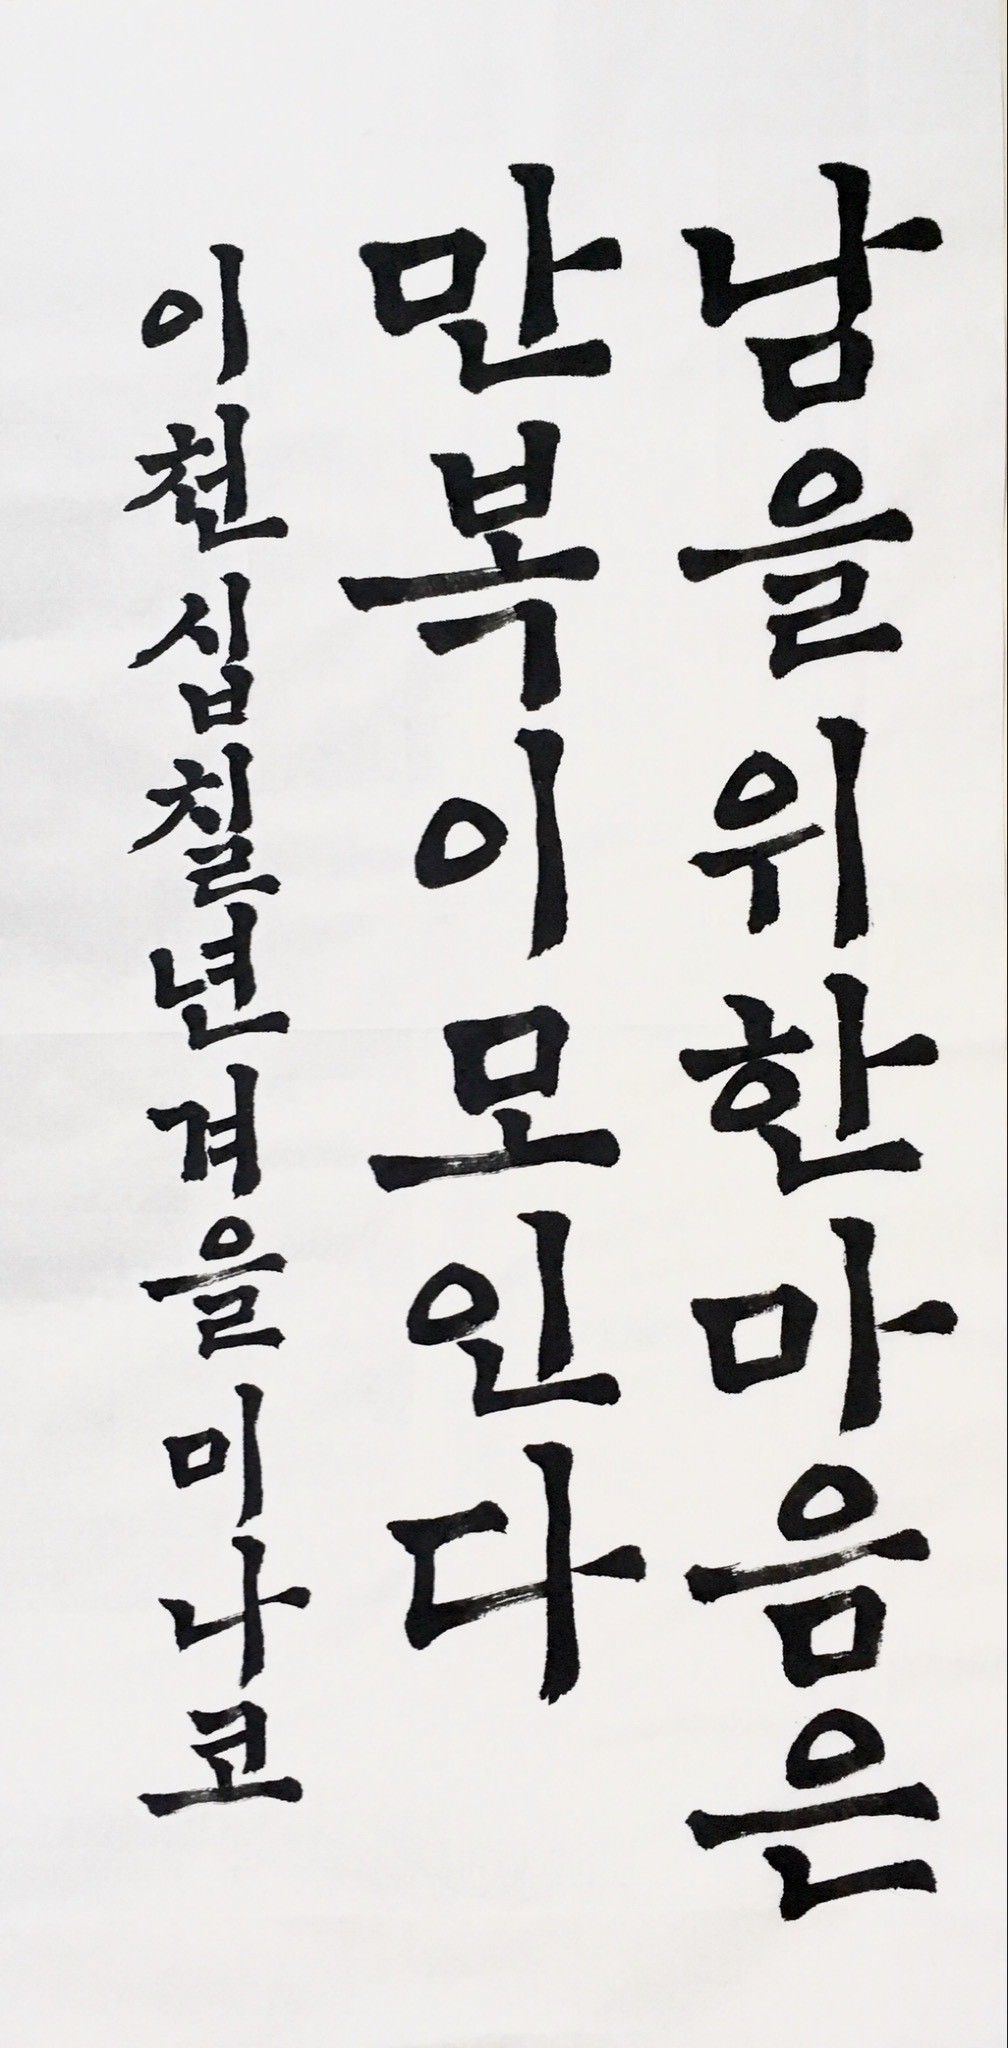 남을위한마음은
만복이모인다
이천십칠년겨을미나코